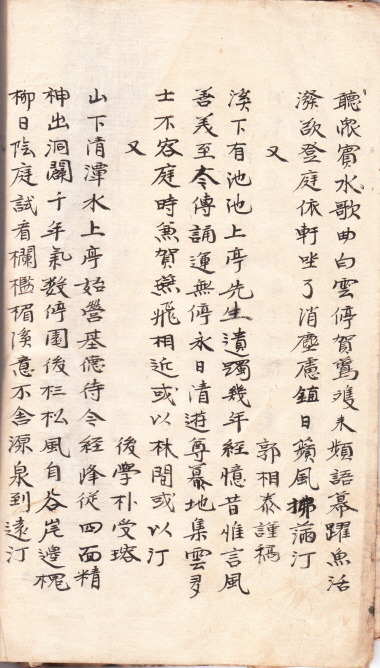 聽衆賓水歌曲白雲停賀鶯雙未頻語幕躍魚活
潑欲登庭依軒坐了消塵慮鎮日蘋風拂滿汀
又
郭相泰謹稿
溪下有池池上亭先生遺躅幾年經憶昔惟言風
吾羙至今傳誦運無停永日清遊尊慕地集雲多
士不容庭時兼賀燕飛相近或以林間或以汀
又
後學朴受瑢
山下清潭水上亭始營基德待今經降從四面精
神出洞闢千年氣數停園後杉松風自谷崖邊槐
柳日陰庭試看欄檻楣溪意不舍源泉到遠汀